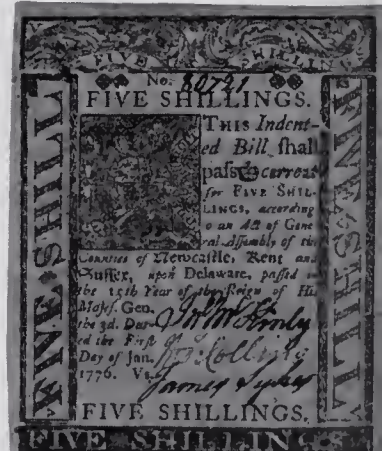 FIVE SHILLING
No. 80721
FIVE SHILLINGS.
THIS Indent-
ed Bill shall
pass current
for FIVE SHIL-
LINGS, according
to an Act of Gene
ral Assembly of the
Counties of Newcastle, Kent and
Sussex, upon Delaware, passed in
the 15th Year of the Reign of His
Majest. Geo.
the 3d. Dat-
ed the First
Day of Jan.
1776. Vs.
James Sykes
FIVE SHILLINGS.
FIVE SHILLINGS
FIVE SHILLI
FIVE SHILLI